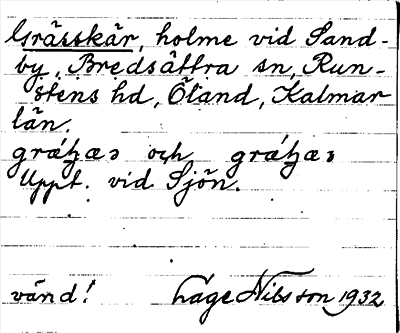 Grässkär, holme vid Sand-
by, Bredsättra sn, Run-
stens hd, Öland, Kalmar
län.
och
Uppt. vid Sjön.
vänd! Låge Nilsson 1932